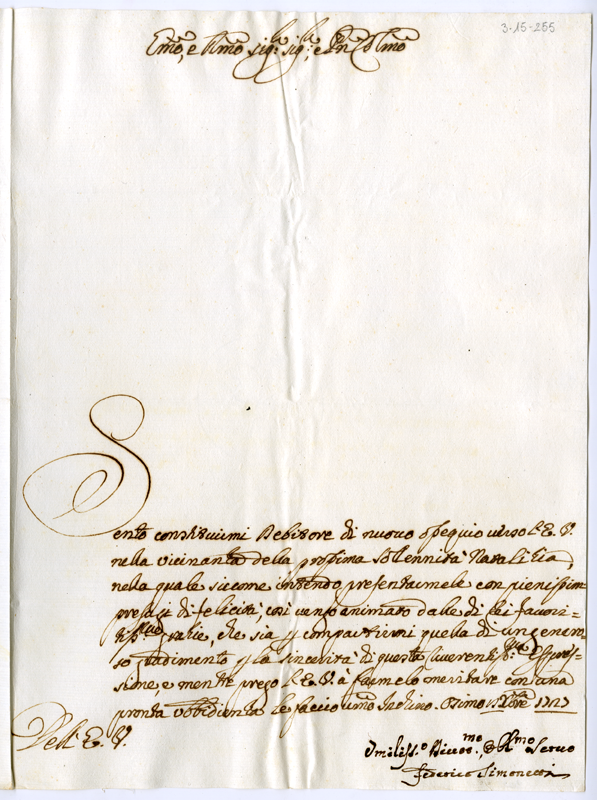 3-15-255
Emo, e Rmo Sigr. Sigr., e Prn Colmo
Sento constituirmi Debitore di nuovo ossequio verso l'E. V.
nella vicinanza della prossima Solennità Natalitia,
nella quale siccome intendo presentarmele con pienissimi
presagi di felicità, così vengo animato dalle di lei
grazie, che sia p compartirmi quella di un genero-
so gradimento p la sincerità di questa riverentissa. Espres-
sione, e mentre prego l'E. V. à farmelo meritare con una
pronta obbidienza le faccio umo Inchino. Osimo 1727
Dell'E. V.
Umilisso. Divotmo, & Obmo Servo
Federico Simonetti